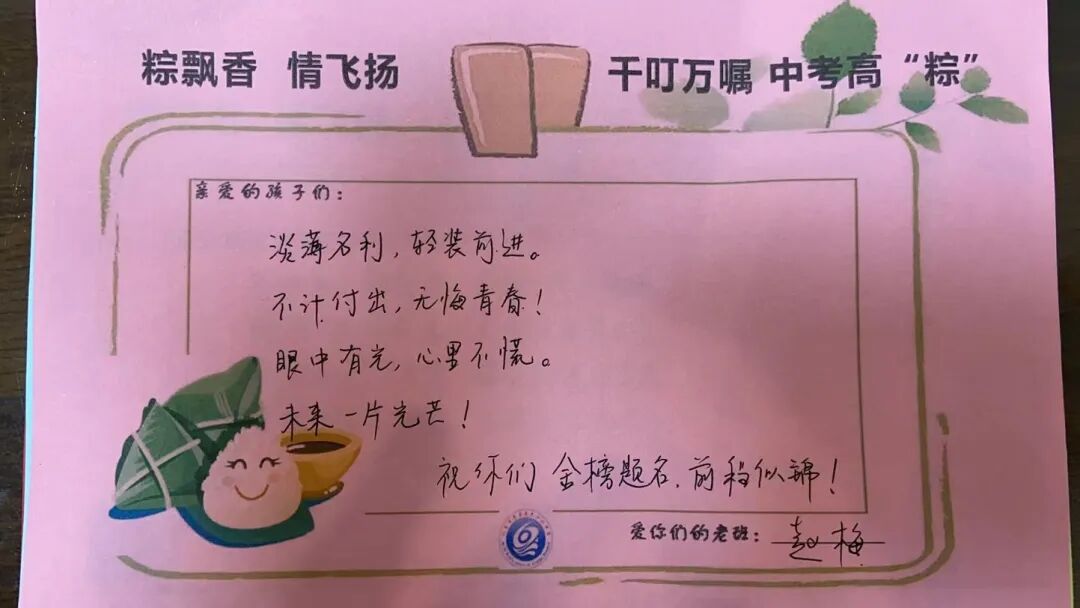 粽飘香 情飞扬 千叮万嘱 中考高“粽”
亲爱的孩子们：
淡薄名利，轻装前进。
不计付出，无悔青春！
眼中有光，心里不慌。
未来一片光芒！
祝你们 金榜题名、前程似锦！
爱你们的老班：赵梅